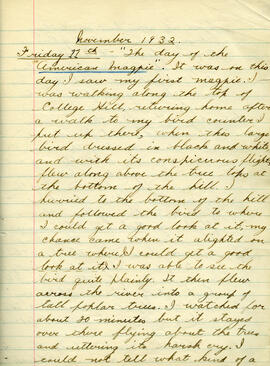 November 1932.
Friday 11th - "The day of the
"American Magpie". It was on this
day I saw my first magpie. I
was walking along the top of
College Hill, returning home after
a walk to my bird counter I
put up there, when this large
bird dressed in black and white,
and with its conspicuous flight,
flew along above the tree tops at
the bottom of the hill. I
hurried to the bottom of the hill
and followed the bird to where
I could get a good look at it, my
chance came when it alighted on
a tree where I could get a good
look at it. I was able to see the
bird quite plainly. It then flew
across the river into a group of
tall poplar trees. I watched for
about 20 minutes but it stayed
over there flying about the trees
and uttering its harsh cry. I
could not tell what kind of a